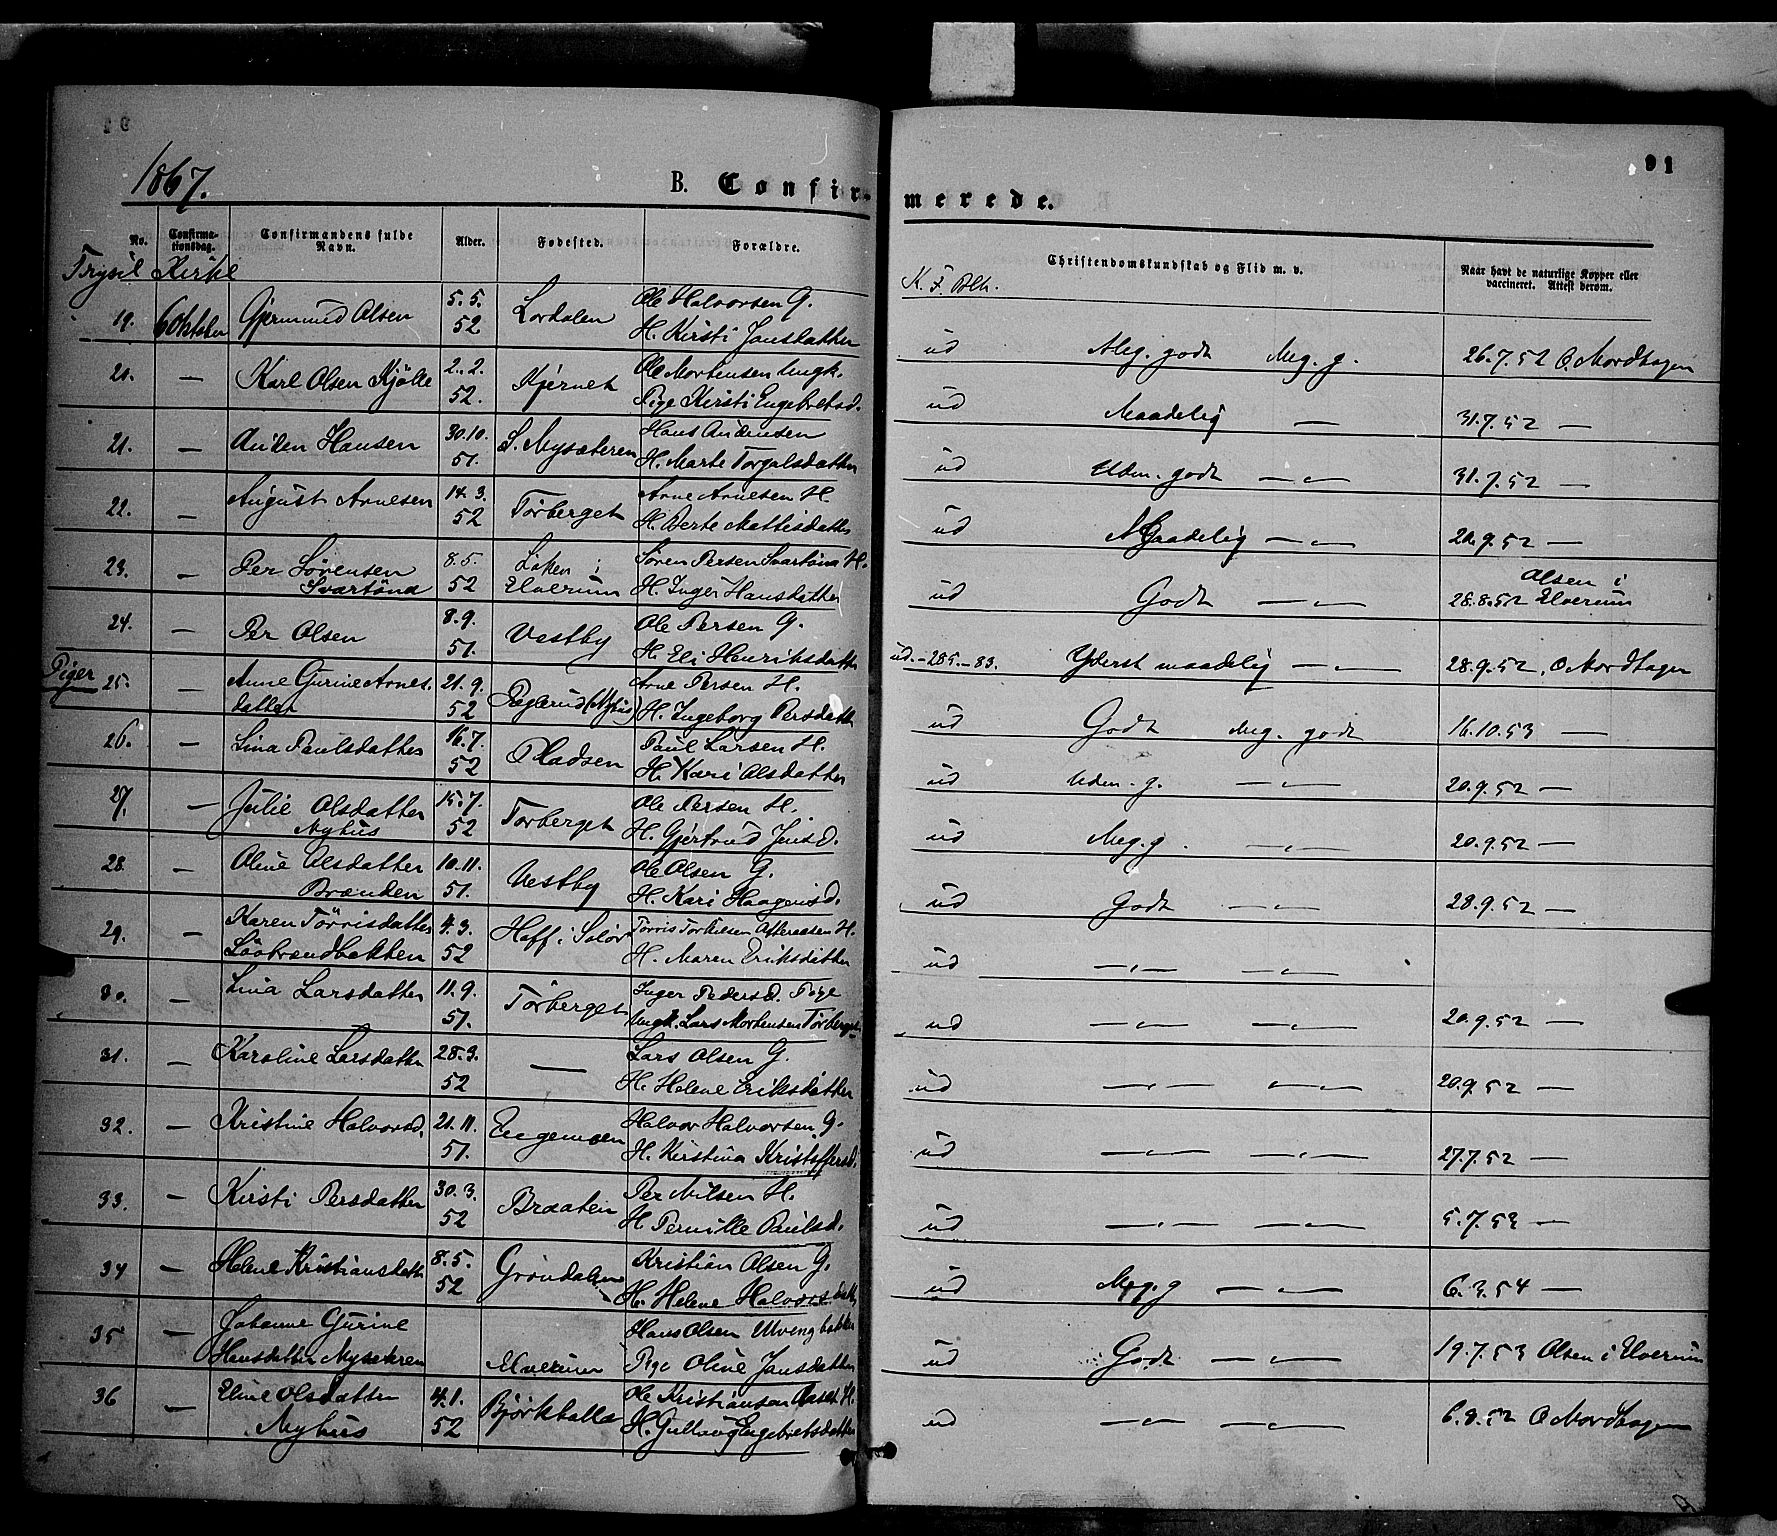 1867.
B. Confir-
merede.
91
No.
Confirma-
tionsdag.
Confirmandens fulde
Navn.
Alder.
Fødested.
Forældre.
Christendomskundskab og Flid m. v.
Naar havt de naturlige Kopper eller
vaccineret. Attest derom.
Trysil Kirke
K. F.
19. 6 Oktober Gjermund Olsen 5.5. 52 Lordalen Ole Halvorsen G.
H. Kirsti Jonsdatter
ud Meg. godt Meg. g. 26.7.52 O. Nordhagen
20. — Karl Olsen Kjølle 2.2. 52. Kjernet Ole Mortensen Ungk.
Pige Kirsti Engebretsd.
ud Maadelig — 31.7.52 —
21. — Hansen 30.10. 51. S. Mysæteren Hans
H. Marte Torgalsdatter
ud Udm. godt —„— 31.7.52 —
22. — August Arnesen 14.3. 52 Törberget Arne Arnesen H.
H. Berte Mattisdatter
ud Maadelig —„— 20.9.52 —
23. — Per Sörensen
Svartöna 8.5. 52 Löken i
Elverum Sören Persen Svartöna H.
H. Inger Hansdatter
ud Godt —„— 28.8.52 Olsen i
Elverum
24. — Per Olsen 8.9. 51. Vestby Ole Persen G.
H. Eli Henriksdatter
ud.-285.-83. Yderst maadelig —„— 28.9.52. O Nordhagen
Piger
25. — Anne Gurine Arnes-
datter 21.9. 52 (Nyhus) Arne Persen H.
H. Ingeborg Persdatter
ud Godt Meg. godt 16.10.53 —
26. — Lina Paulsdatter 16.7. 52 Pladsen Paul Larsen H.
H. Kari Olsdatter
ud Udm. g. —„— 20.9.52 —
27. — Julie Olsdatter
Nyhus 15.7. 52 Törberget Ole Persen H.
H. Gjertrud Jensd.
ud Meg. g. —„— 20.9.52 —
28. — Oline Olsdatter
Brænden 10.11. 51. Vestby Ole Olsen G.
H. Kari Haagensd.
ud Godt —„— 28.9.52 —
29. — Karen Törrisdatter
4.3. 52 Hoff i Solör Törris Torkilsen H.
H. Maren Eriksdatter
ud —„— —„—
30. — Lina Larsdatter 11.9. 51. Törberget Inger Pedersd. Pige
Ungk. Lars Mortensen Törberget
ud —„— —„— 20.9.52 —
31. — Karoline Larsdatter 28.3. 52 — Lars Olsen G.
H. Helene Eriksdatter
ud —„— —„— 20.9.52 —
32. — Kristine Halvorsd. 21.11. 51. Engemoen Halvor Halvorsen G.
H. Kirstina Kristoffersd.
ud —„— —„— 27.7.52 —
33. — Kirsti Persdatter 30.3. 52 Braaten Per Nilsen H.
H Pernille Paulsd.
ud —„— —„— 5.7.53 —
34 — Helene Kristiansdatter 8.5. 52 Gröndalen Kristian Olsen G.
H. Helene Halvorsdatter
ud Meg. g —„— 6.3.54 —
35 — Johanne Gurine
Hansdatter Mysæteren Elverum Hans Olsen Ulvengbakken
Pige Oline Jansdatter
ud Godt —„— 19.7.53 Olsen i Elverum
36 — Eline Olsdatter
Nyhus 4.1. 52 Björkhalla Ole Kristiansen Aaset H.
H. Gullaug Engebretsdatter
ud —„— —„— 6.8.52 O Nordhagen